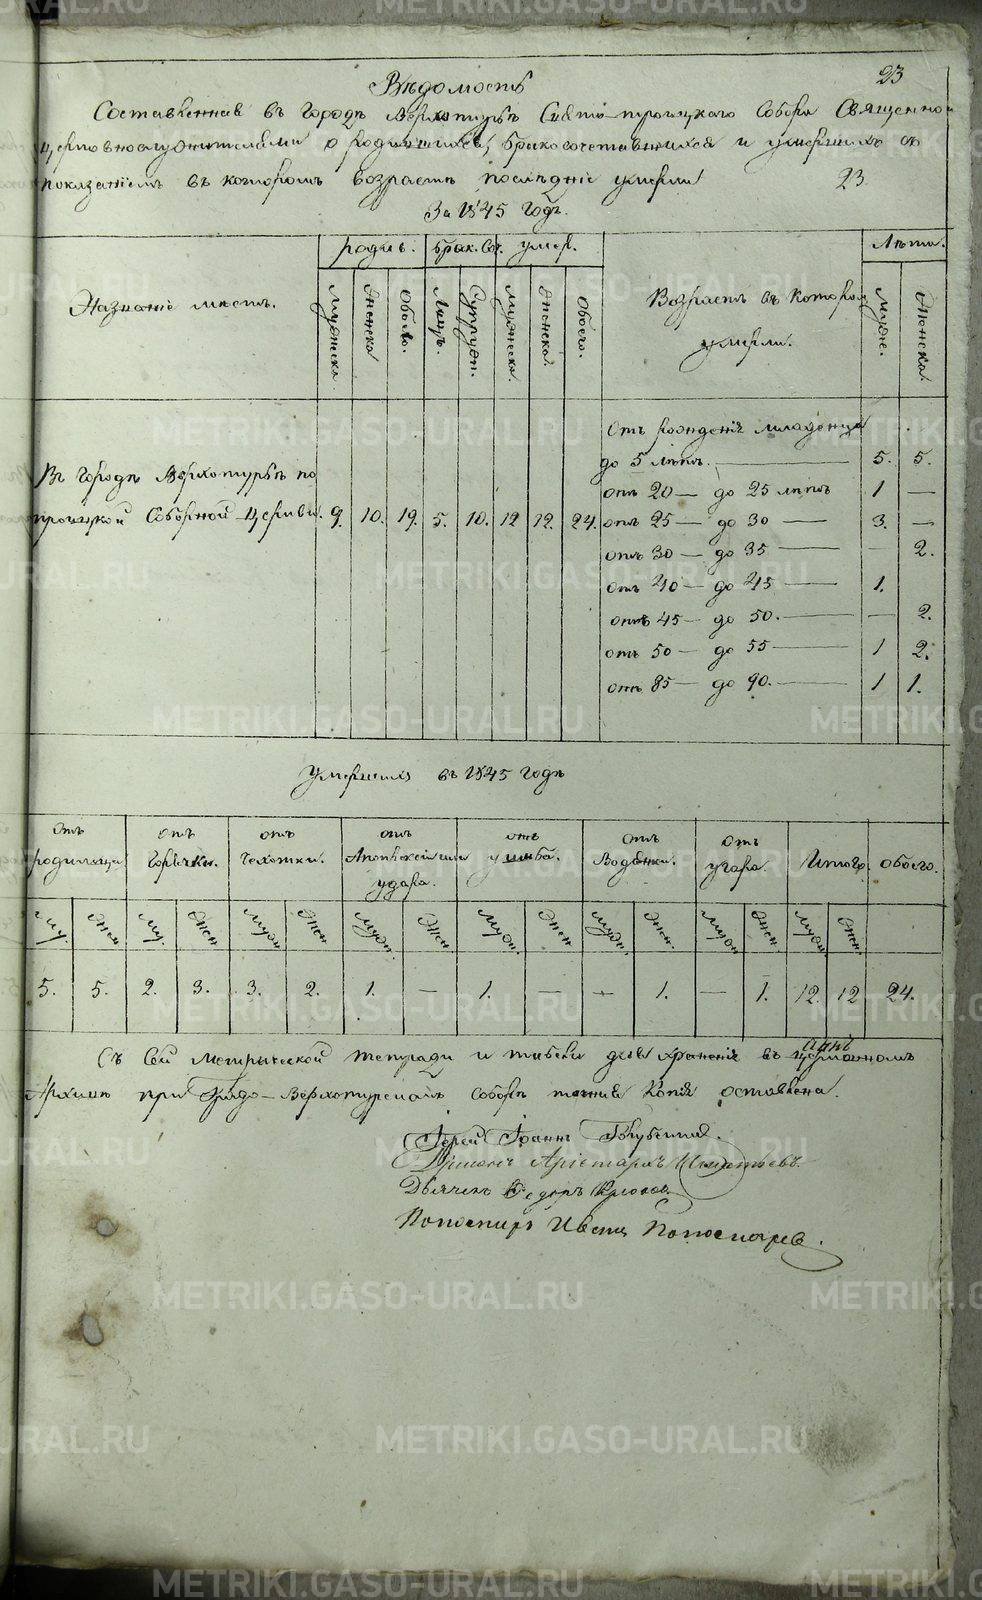 23
Вѣдомость
Составленная въ Городѣ Верхотурьѣ Свято-троицкаго Собора Священно
церковнослужителями о родившихся, бракосочетавшихся и умершихъ съ
показаніемъ въ которомъ возрастѣ послѣдніе умерли 23
За 1845 Годъ.
родив. брак. Соч. умер. Лѣта.
Названіе мѣстъ. Мужеска Женска Обоѣ. Лицъ. Супруж. мужеска. женска. Обоего. Возрастъ въ которомъ умерли. муже. Женска.
Отъ рожденія младенца
до 5 лѣтъ. 5. 5.
Въ городѣ Верхотурьѣ по
троицкой Соборной Церкви. 9. 10. 19. 5. 10. 12 12. 24.
отъ 20 — до 25 лѣтъ 1 —
отъ 25 — до 30 — 3. —
отъ 30 — до 35 — — 2.
отъ 40 — до 45 — 1.
отъ 45 — до 50. — — 2.
отъ 50 — до 55 — 1 2.
отъ 85 — до 90. — 1 1.
Умершихъ въ 1845 годѣ
отъ родимца отъ Горячки. отъ Чахотки. отъ Апоплексіи удара. отъ ушиба. отъ Водянки. отъ угара. Итого. обоего.
му. жен му. жен муж жен муж. Жен. муж. жен муж. жен. муж жен. муж жен.
5. 5. 2. 3. 3. 2. 1. — 1. — — 1. — 1. 12. 12 24.
Съ Сей Метрической тетради и табели для храненія въ церковномъ
Архивѣ при Градо-Верхотурскомъ Соборѣ точная Копія оставлена.
Іерей Іоаннъ
Аристархъ Игнатьевъ.
Дьячекъ Федоръ Крюков.
Пономарь Иванъ Пономарев.
METRIKI.GASO-URAL.RU